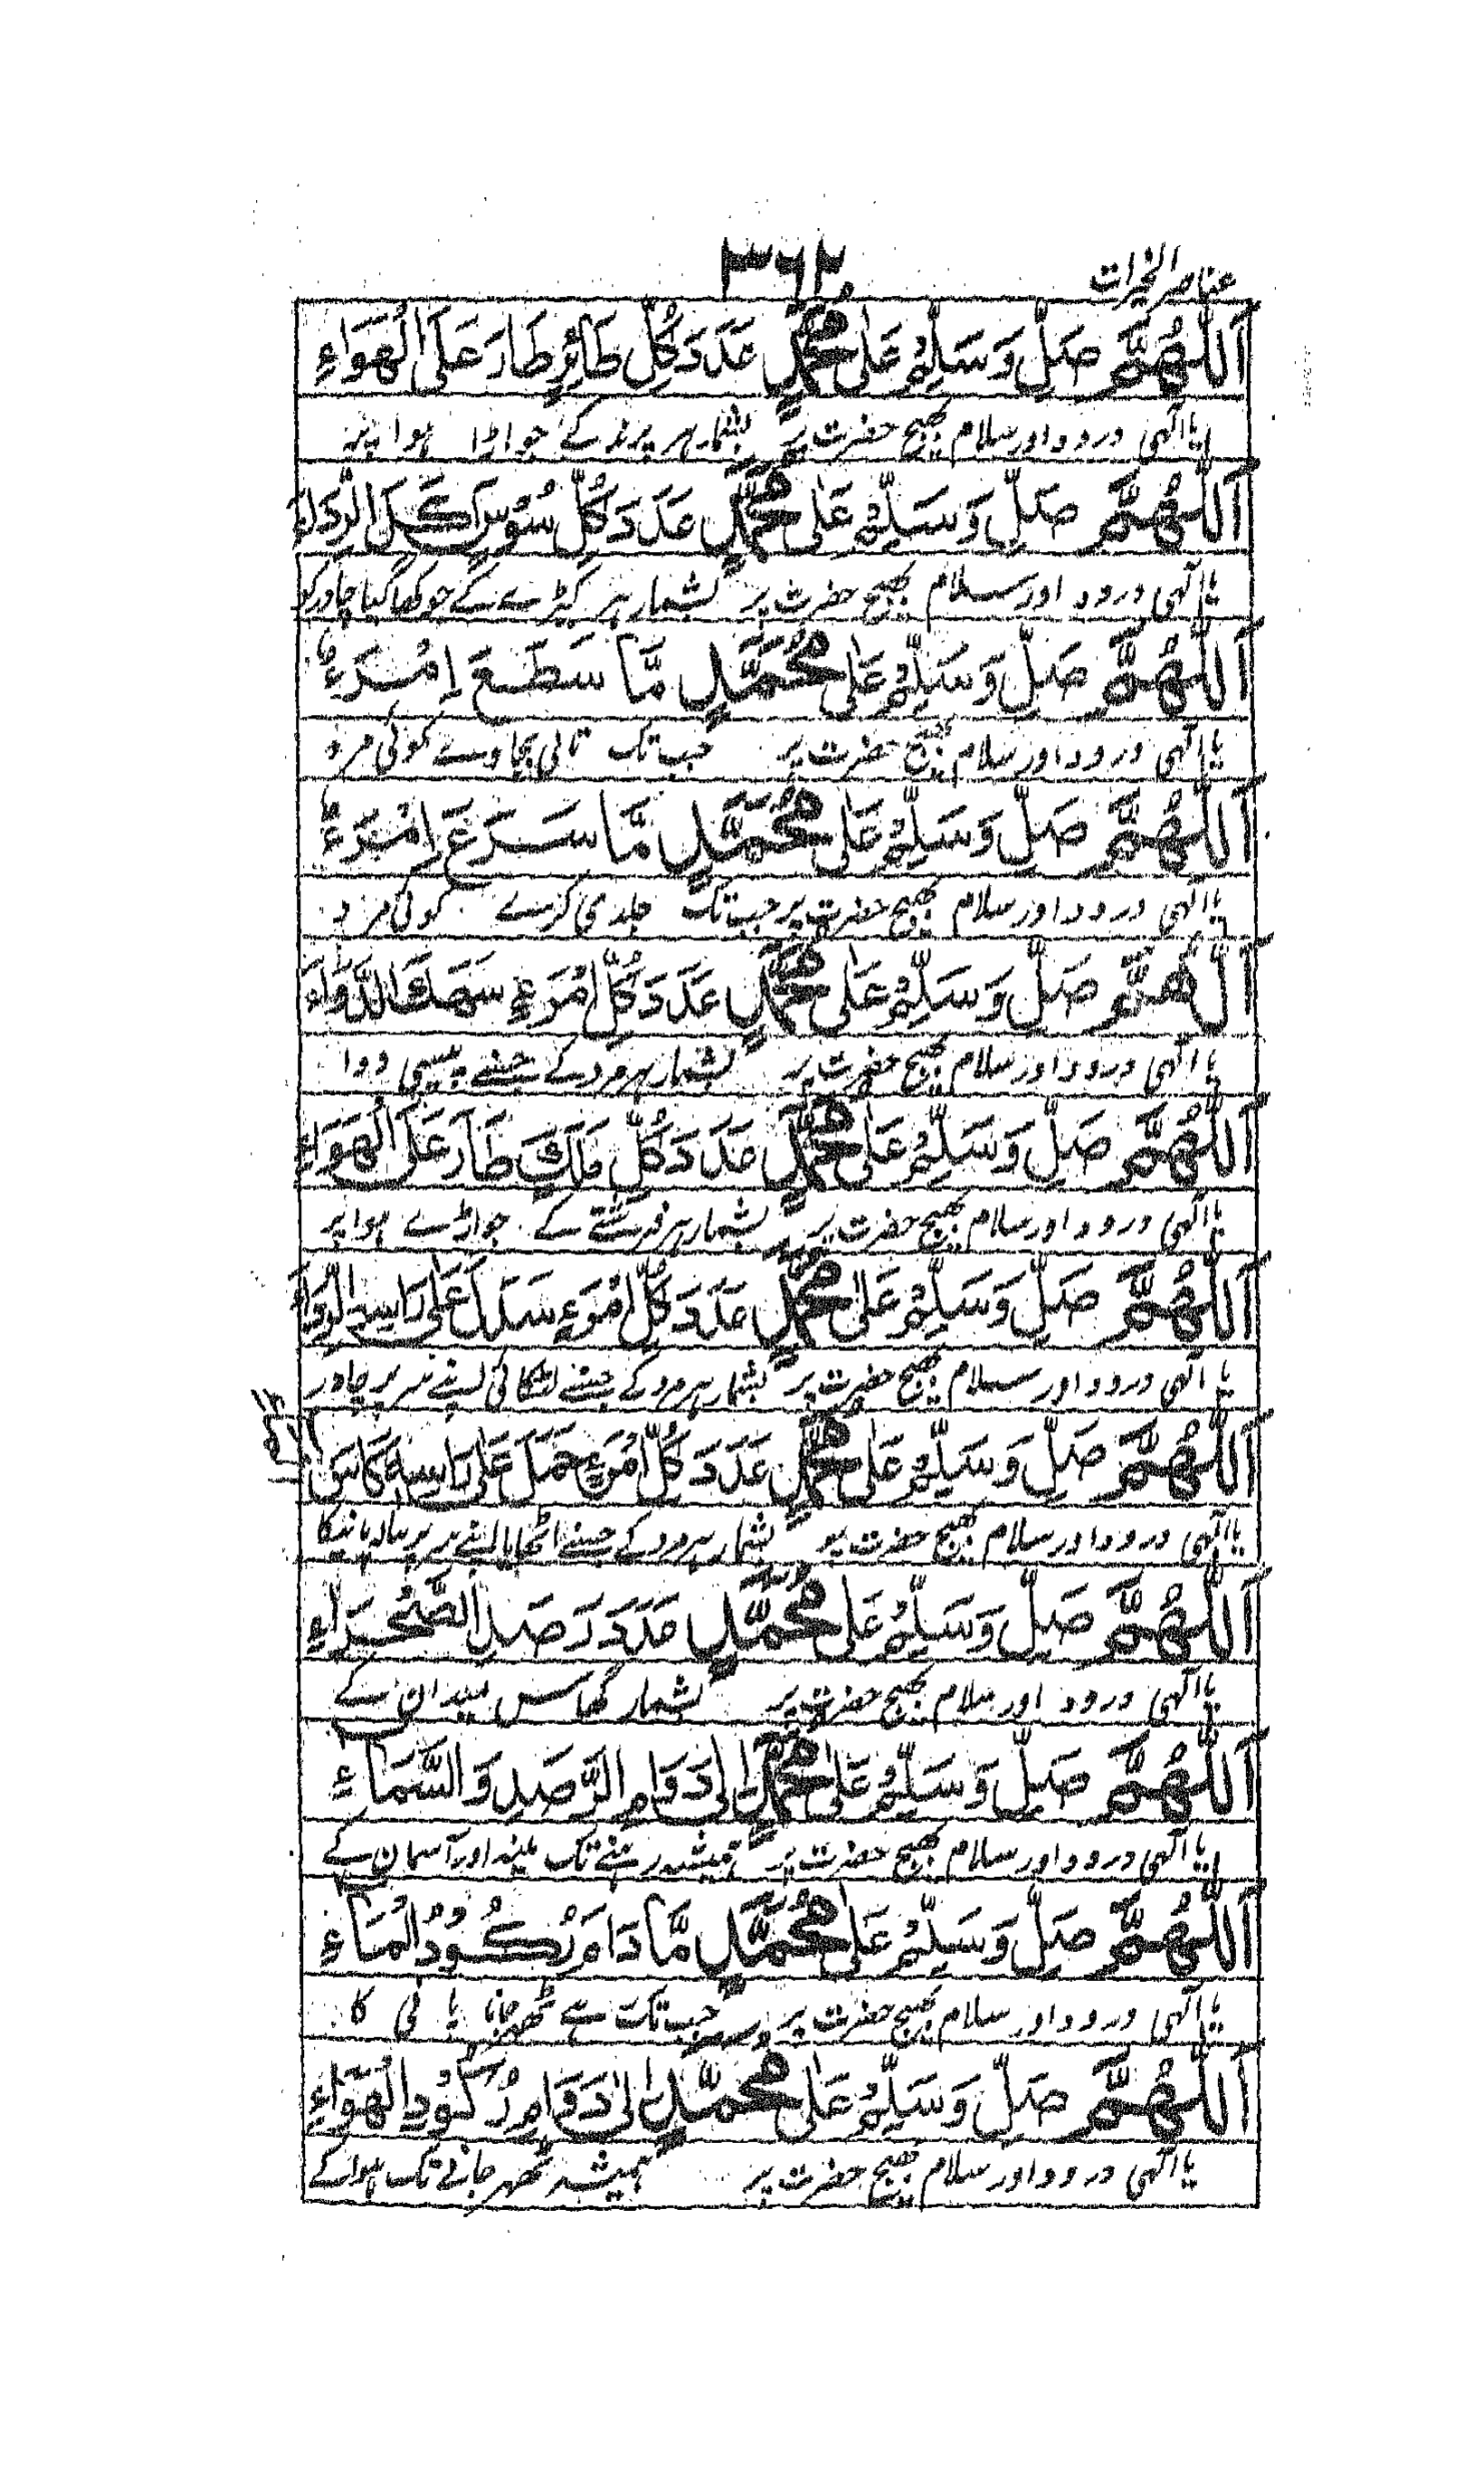 عناصر الخیرات
۳۶۲
اَللّٰهُمَّ صَلِّ وَسَلِّمْ عَلٰى مُحَمَّدٍ عَدَدَ كُلِّ طَائِرٍ طَارَ عَلَى الْهَوَاءِ
یا الٰہی درود اور سلام بھیج حضرت پر بشمار ہر پرند کے جو اڑا ہوا پہ
اَللّٰهُمَّ صَلِّ وَسَلِّمْ عَلٰى مُحَمَّدٍ عَدَدَ كُلِّ سُوْسٍ اَكَلَ الرِّدَاءَ
یا الٰہی درود اور سلام بھیج حضرت پر بشمار ہر کیڑے کے جو کھا گیا چادر کو
اَللّٰهُمَّ صَلِّ وَسَلِّمْ عَلٰى مُحَمَّدٍ مَّا سَطَعَ اِمْرَءٌ
یا الٰہی درود اور سلام بھیج حضرت پر جب تک تالی بجاوے کوئی مرد
اَللّٰهُمَّ صَلِّ وَسَلِّمْ عَلٰى مُحَمَّدٍ مَّا سَرَعَ اِمْرَءٌ
یا الٰہی درود اور سلام بھیج حضرت پر جب تک جلدی کرے کوئی مرد
اَللّٰهُمَّ صَلِّ وَسَلِّمْ عَلٰى مُحَمَّدٍ عَدَدَ كُلِّ امْرَءٍ سَهَكَ الدَّوَاءَ
یا الٰہی درود اور سلام بھیج حضرت پر بشمار ہر مرد کے جسنے پیسی دوا
اَللّٰهُمَّ صَلِّ وَسَلِّمْ عَلٰى مُحَمَّدٍ عَدَدَ كُلِّ مَلَكٍ طَارَ عَلَى الْهَوَاءِ
یا الٰہی درود اور سلام بھیج حضرت پر بشمار ہر فرشتے کے جو اڑے ہوا پر
اَللّٰهُمَّ صَلِّ وَسَلِّمْ عَلٰى مُحَمَّدٍ عَدَدَ كُلِّ امْرَءٍ سَدَلَ عَلٰى رَاْسِهِ الرِّدَاءَ
یا الٰہی درود اور سلام بھیج حضرت پر بشمار ہر مرد کے جسنے لٹکائی اپنے سر پر چادر
اَللّٰهُمَّ صَلِّ وَسَلِّمْ عَلٰى مُحَمَّدٍ عَدَدَ كُلِّ امْرَءٍ حَمَلَ عَلٰى رَاْسِهٖ كَاْسَ
یا الٰہی درود اور سلام بھیج حضرت پر بشمار ہر مرد کے جسنے اٹھایا اپنے سر پر پیالہ پانیکا
اَللّٰهُمَّ صَلِّ وَسَلِّمْ عَلٰى مُحَمَّدٍ عَدَدَ رَصَدِ الصَّحْرَاءِ
یا الٰہی درود اور سلام بھیج حضرت پر بشمار گھاس میدان کے
اَللّٰهُمَّ صَلِّ وَسَلِّمْ عَلٰى مُحَمَّدٍ اِلٰى دَوَامِ الرَّصَدِ وَالسَّمَاءِ
یا الٰہی درود اور سلام بھیج حضرت پر ہمیشہ رہنے تک مینہ اور آسمان کے
اَللّٰهُمَّ صَلِّ وَسَلِّمْ عَلٰى مُحَمَّدٍ مَّا دَامَ رُكُوْدُ الْمَاءِ
یا الٰہی درود اور سلام بھیج حضرت پر جب تک ہے ٹھہر جانا پانی کا
اَللّٰهُمَّ صَلِّ وَسَلِّمْ عَلٰى مُحَمَّدٍ اِلٰى دَوَامِ رُكُوْدِ الْهَوَاءِ
یا الٰہی درود اور سلام بھیج حضرت پر ہمیشہ ٹھہر جانے تک ہوا کے